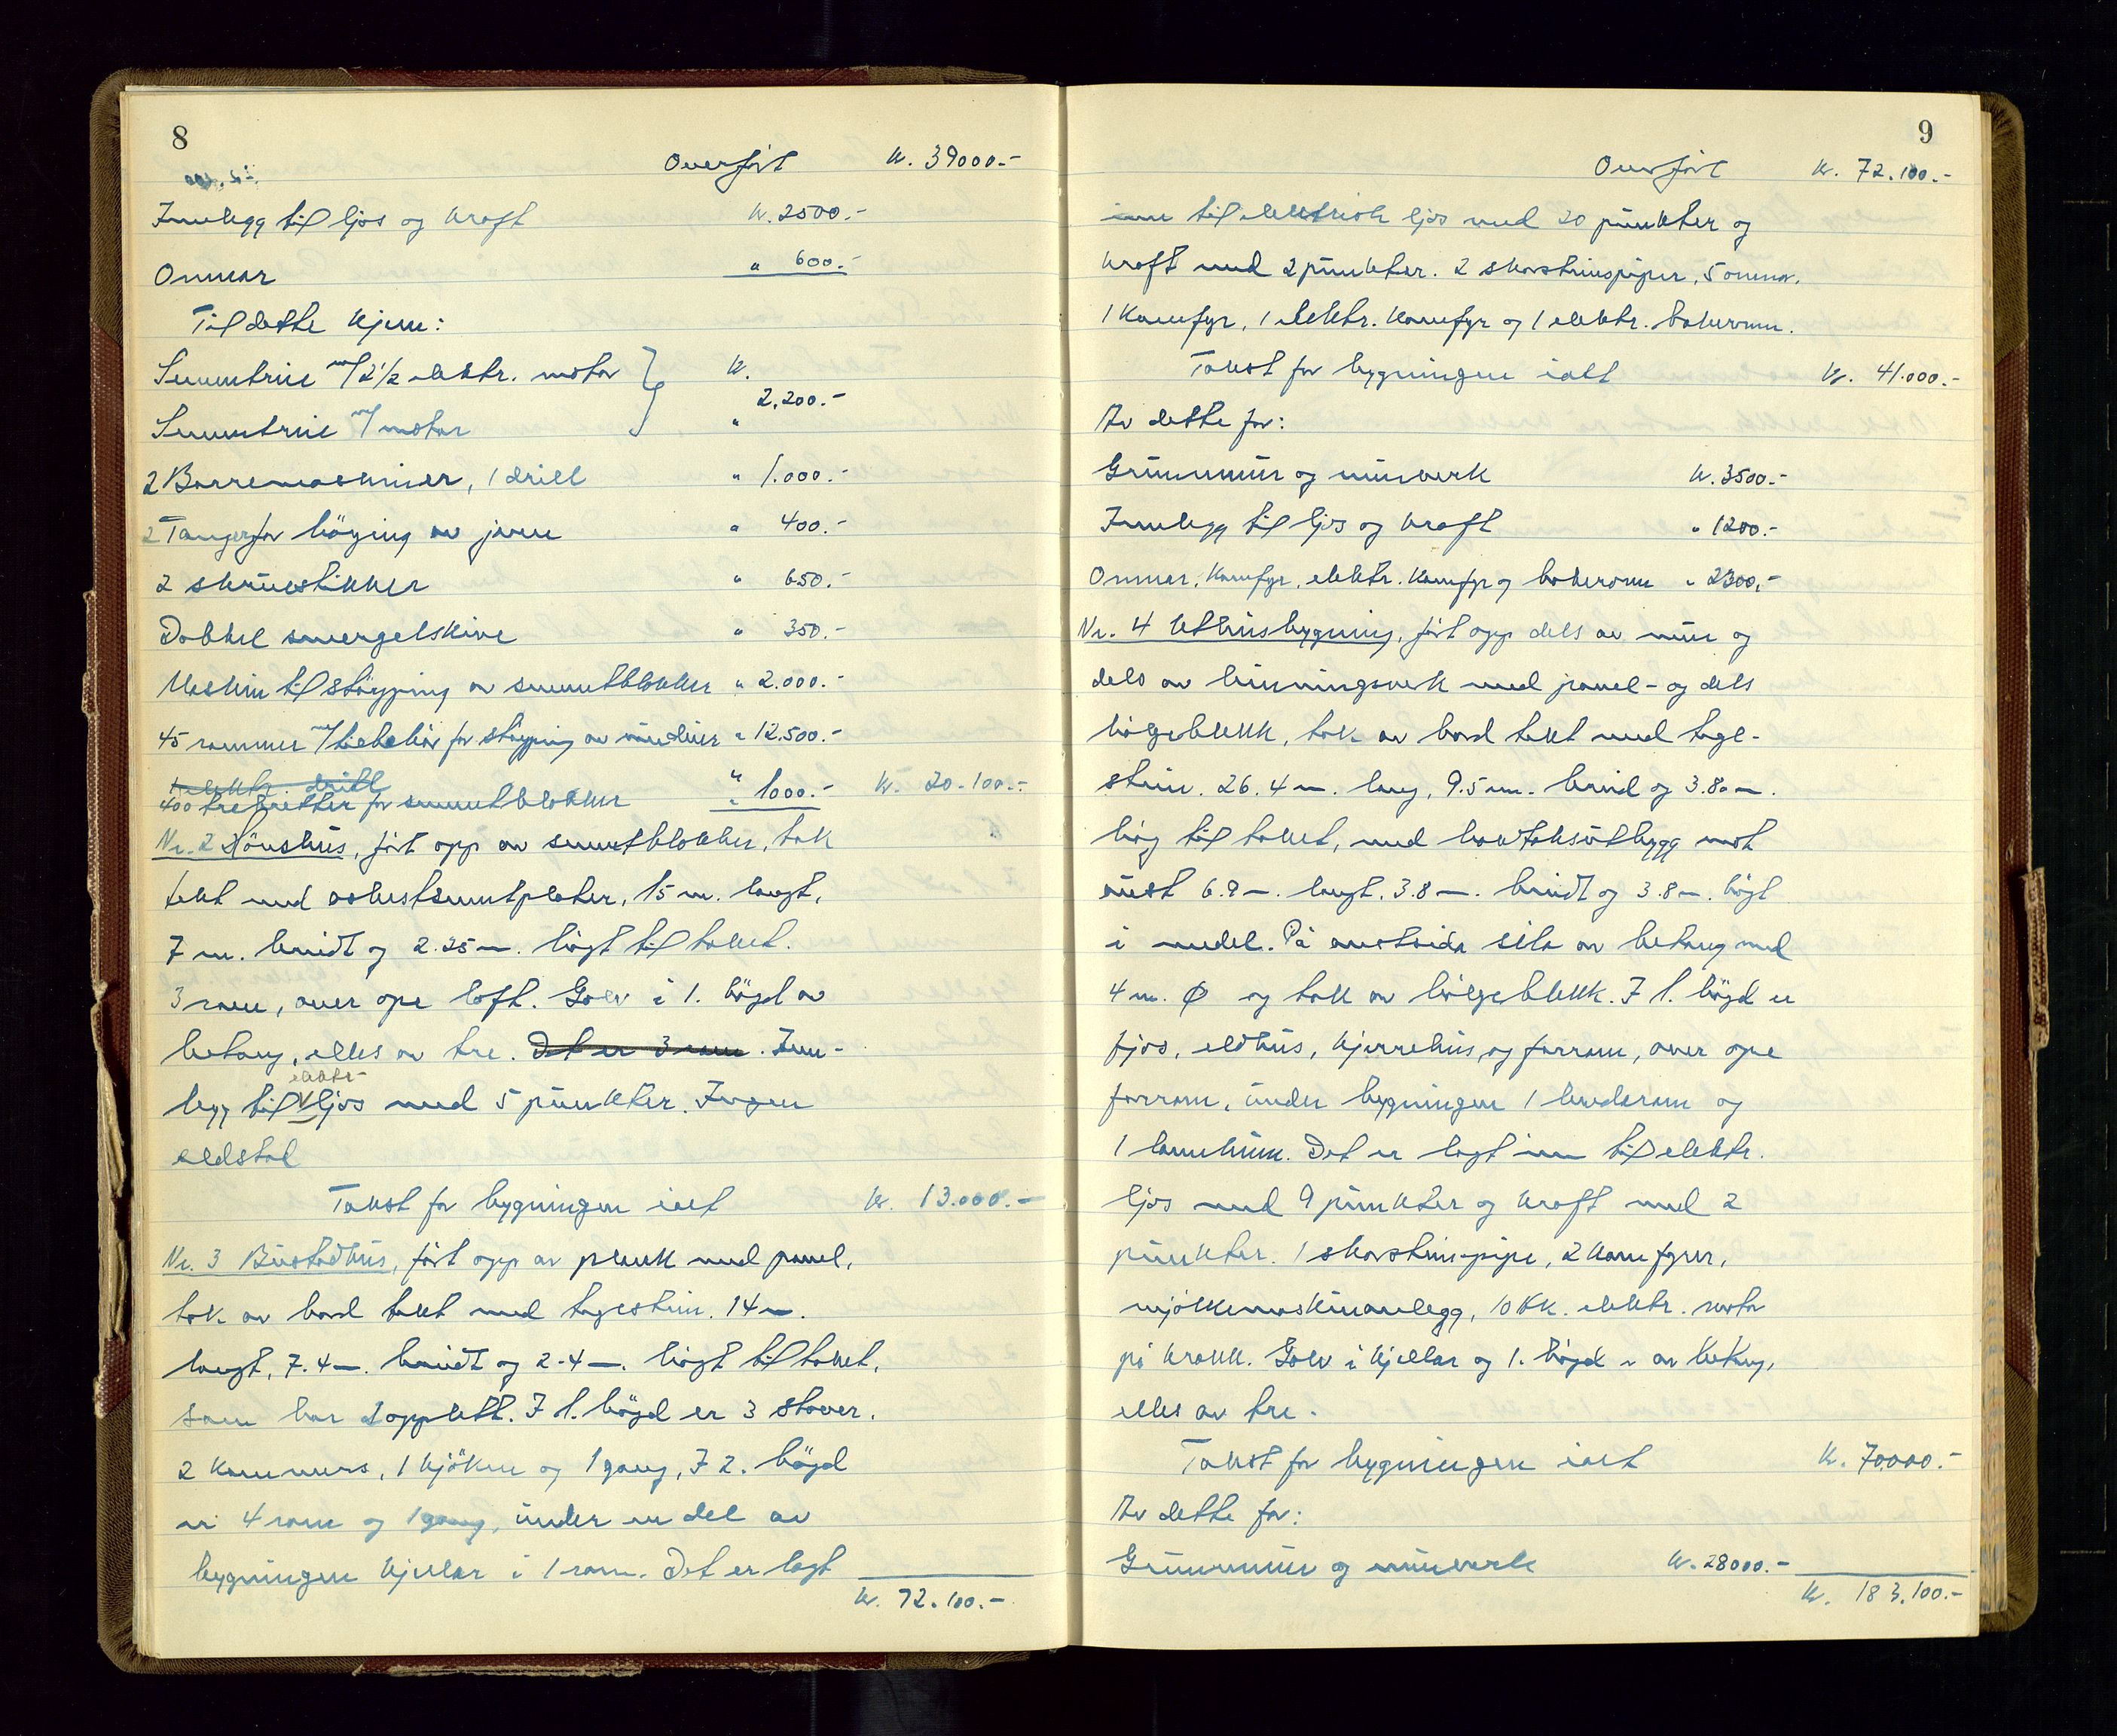 8
Overført kr. 39000.-
Innlegg til ljos og kraft kr. 2500.-
Omnar " 600.-
Til dette kjem:
Sementrive m/ 2 1/2 elektr. motor kr.
2.200.-
Sementrive m/ motor "
2 Borremaskiner, 1 drill " 1.000.-
2 Tanger for böying av jern " 400.-
2 skruestikker " 650.-
Dobbel smergelskive " 350.-
Maskin til støyping av sementblokker " 2.000.-
45 rammer m/ tilbehör for støyping av " 12.500.-
1 elektr. drill "
400 trebretter for sementblokker " 1000.- kr. 20.100.-
Nr. 2 Hönshus, ført opp av sementblokker, tak
tekt med asbestsementplater, 15 m. langt,
7 m. breidt og 2.25 m. høgt til taket.
3 rom, over ope loft. Golv i 1. högd av
betong, elles av tre. Det er 3 rom. Inn-
elektr.
legg til ljos med 5 punkter. Ingen
eldstad
Takst for bygningen ialt kr. 13.000.-
Nr. 3 Bustadhus, ført opp av plank med panel,
tak av bord tekt med taglstein. 14 m.
langt, 7.4 m. breidt og 2.4 m. høgt til taket,
som har 1 opplett. I 1. högd er 3 stover,
2 kammers, 1 kjöken og 1 gang, I 2. högd
er 4 rom og 1 gang, under en del av
bygningen kjellar i 1 rom. Det er lagt
kr. 72.100.-
9
Overført kr. 72.100.-
inn til elektrisk ljos med 20 punkter og
kraft med 2 punkter. 2 skorsteinspiper, 5 omnar,
1 komfyr, 1 elektr. komfyr og 1 elektr. bakeromn.
Takst for bygningen ialt kr. 41.000.-
Av dette for:
Grunnmur og murverk kr. 3500.-
Innlegg til ljos og kraft " 1200.-
Omnar, komfyr, elektr. komfyr og bakeromn " 2300.-
Nr. 4 Uthusbygning, ført opp dels av mur og
dels av bindningsverk med panel- og dels
bölgeblekk, tak av bord tekt med tagl-
stein. 26.4 m. lang, 9.5 m. breid og 3.80 m.
høg til taket, med halvtaksutbygg mot
aust 6.9 m. langt, 3.8 m. breidt og 3.8 m. høgt
i medel. På austsida silo av betong med
4 m. Ø og tak av bølgeblekk. I 1. högd er
fjos, eldhus, kjerrehus, og forrom, over ope
forrom, under bygningen 1 rom og
1 landkum. Det er lagt inn til elektr.
ljos med 9 punkter og kraft med 2
punkter. 1 skorsteinspipe, 2 komfyrer,
mjölkemaskinanlegg, 10 HK. elektr. motor
på krakk. Golv i kjellar og 1. høgd er av betong,
elles av tre.
Takst for bygningen ialt kr. 70.000.-
Av dette for:
Grunnmur og murverk kr. 28000.-
kr. 183.100.-